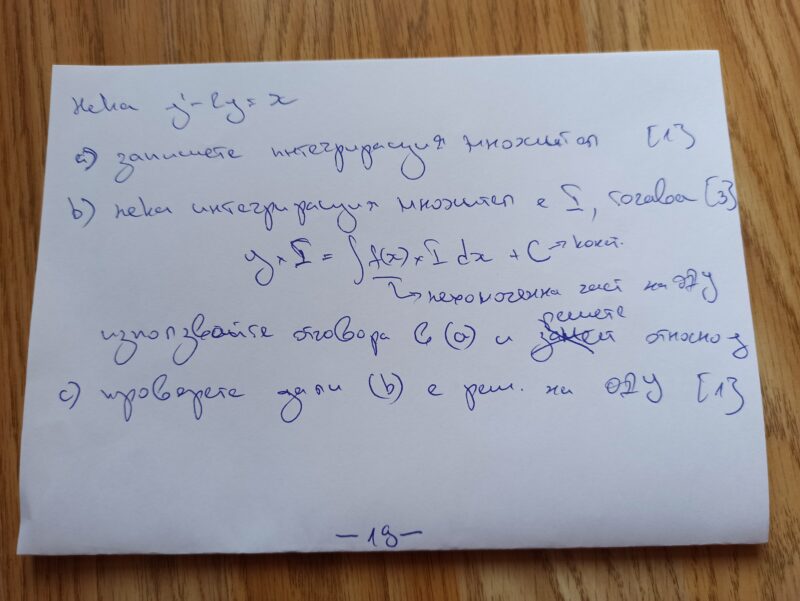 Нека y' - 2y = x
a) запишете интегриращия множител [1]
b) нека интегриращия множител е I, тогава [3]
y × I = ∫ f(x) × I dx + C → конст.
↳ нехомогенна част на ОДУ
решете
използвайте отговора в (a) и относно y
c) проверете дали (b) е реш. на ОДУ [1]
- 19 -